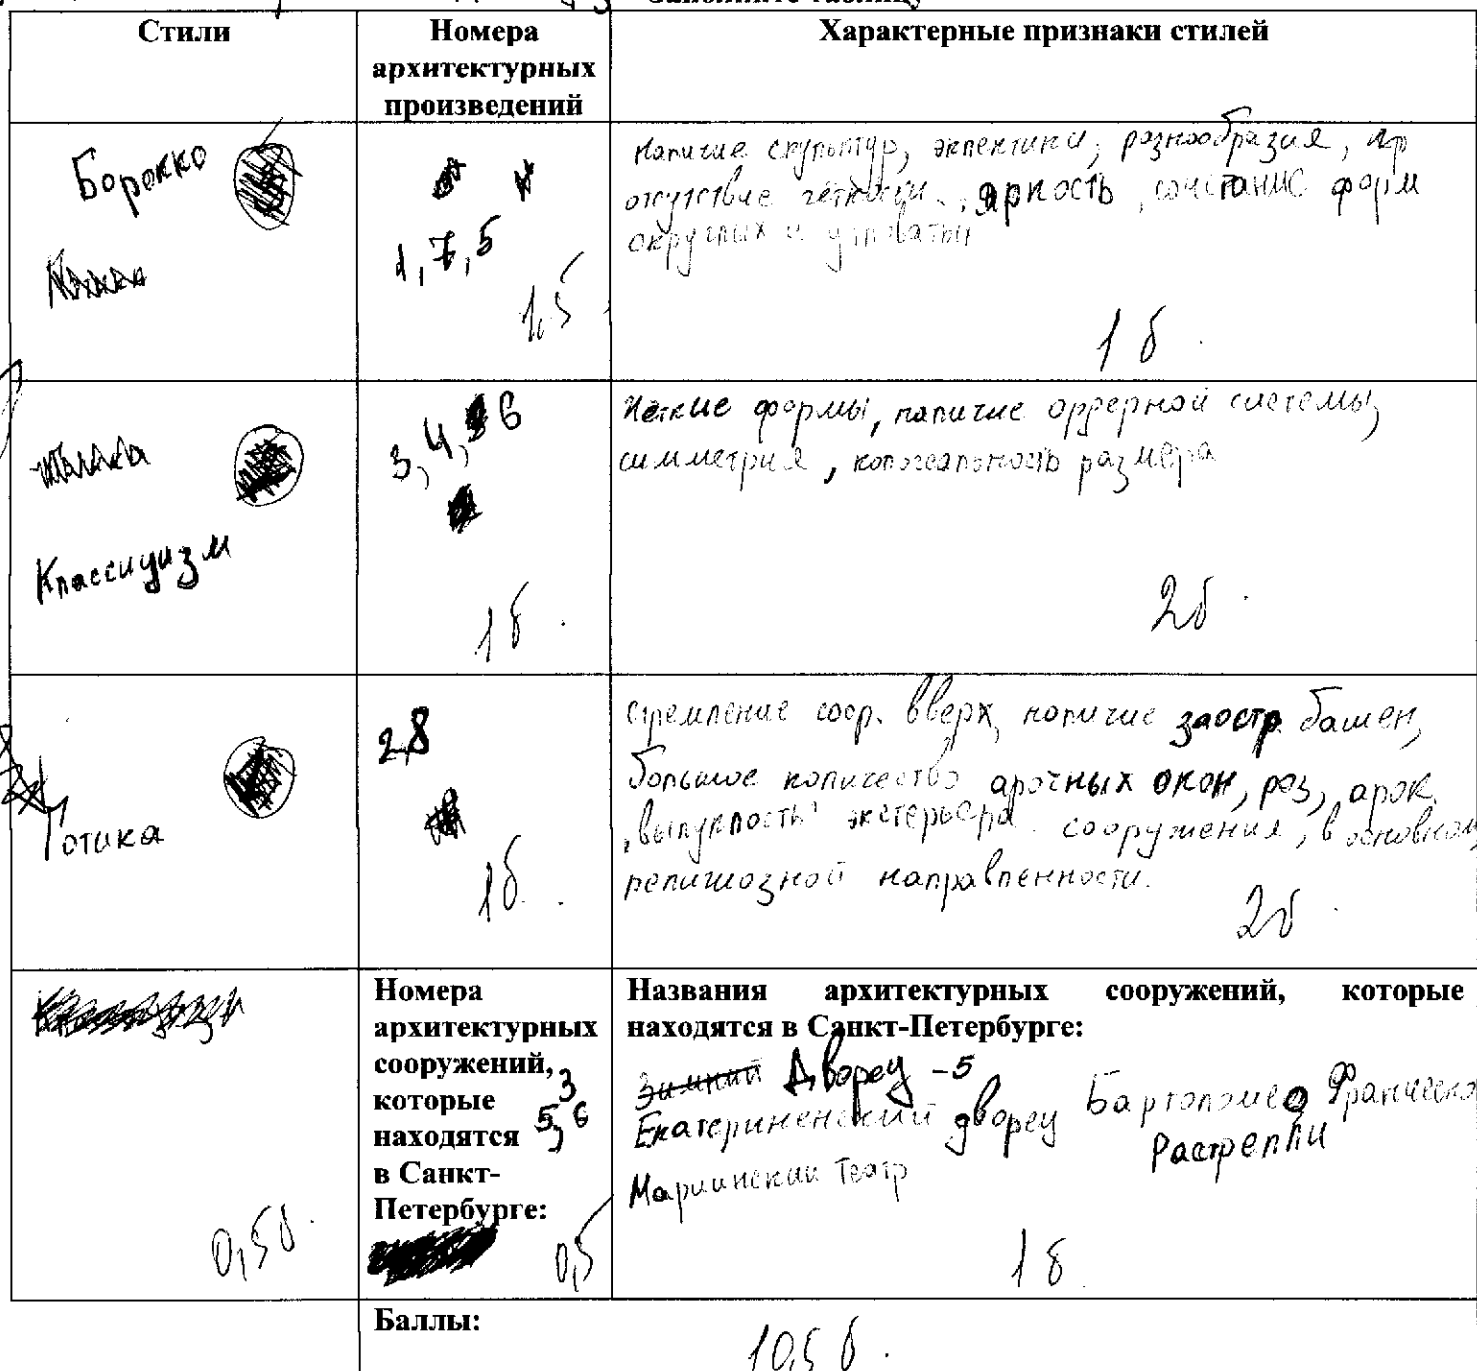 Заполните таблицу
Стили
Номера архитектурных произведений
Характерные признаки стилей
Борокко
1, 7, 5
1,5
Наличие скульптур, эклектики, разнообразия,
отсутствие чёткости, яркость, сочетание форм
округлых и угловатых
1 б.
Классицизм
3, 4, 6
1 б.
Чёткие формы, наличие ордерной системы,
симметрия, колоссальность размера
2 б.
Готика
2,8
1 б.
стремление соор. вверх, наличие заостр. башен,
большое количество арочных окон, роз, арок,
"выпуклость" экстерьера. сооружения, в основном,
религиозной направленности.
2 б.
0,5 б.
Номера
архитектурных
сооружений,
которые
находятся
в Санкт-
Петербурге:
3
5, 6
0,5
Названия архитектурных сооружений, которые
находятся в Санкт-Петербурге:
Зимний Дворец - 5
Екатериненский дворец Бартоломео Франческо
Растрелли
Мариинский Театр
1 б.
Баллы:
10,5 б.